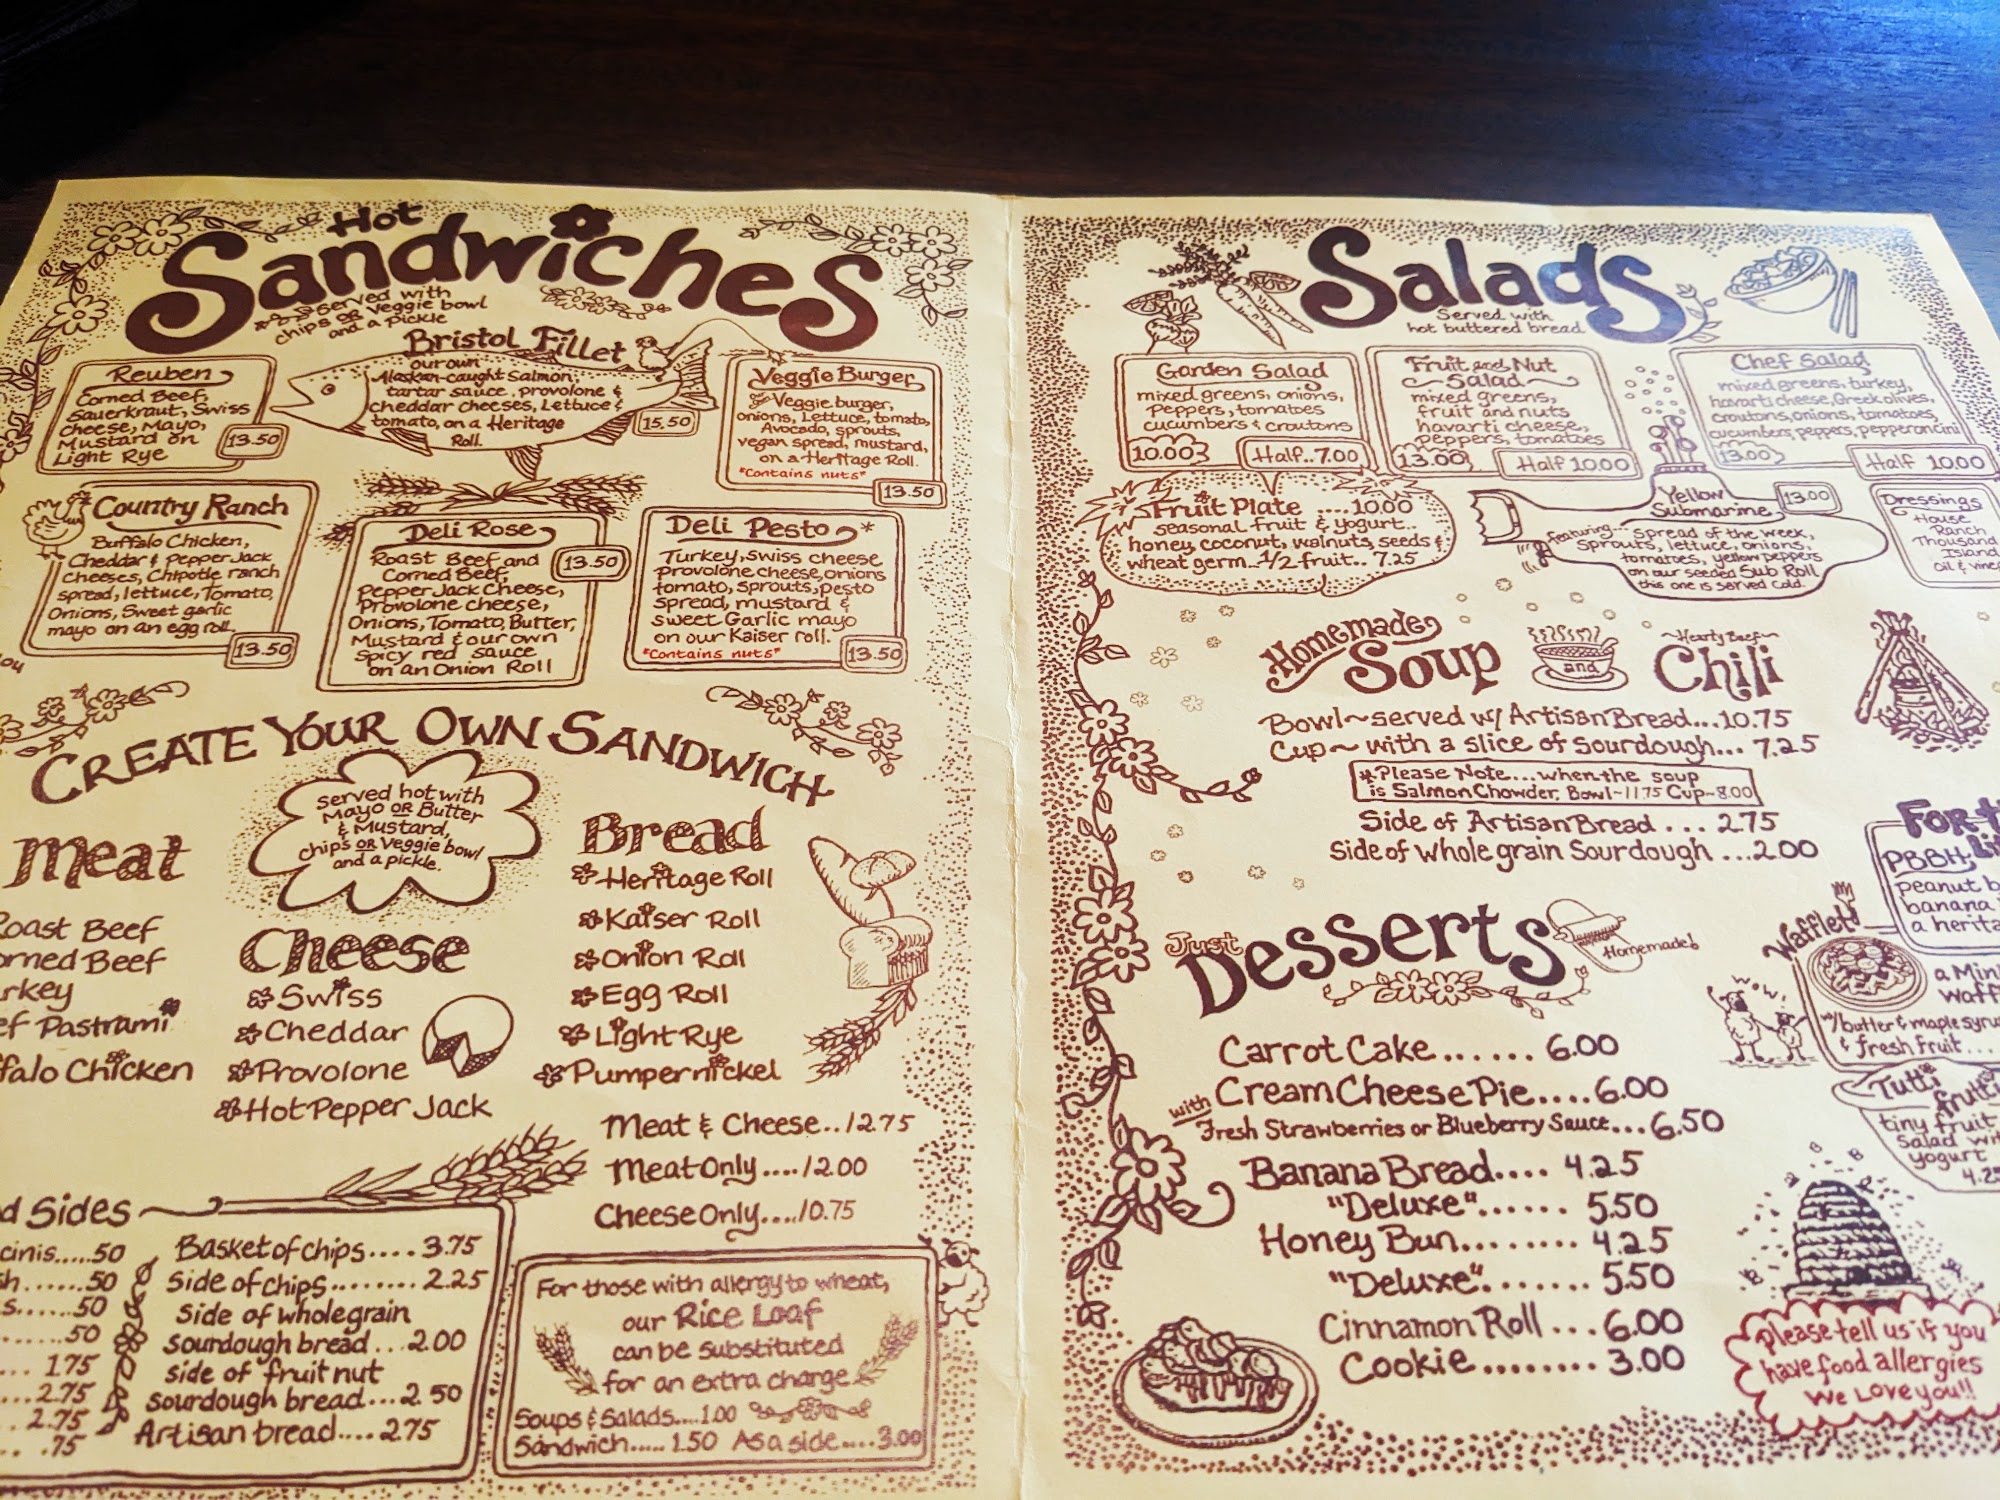 Hot
Sandwiches
served with
chips OR veggie bowl
and a pickle
Reuben
Corned Beef,
Sauerkraut, Swiss
cheese, Mayo,
Mustard on
Light Rye
13.50
Bristol Fillet
our own
Alaskan-caught Salmon,
tartar sauce, provolone &
cheddar cheeses, Lettuce &
tomato, on a Heritage
Roll.
15.50
Veggie Burger
Veggie burger,
onions, Lettuce, tomato,
Avocado, sprouts,
vegan spread, mustard,
on a Heritage Roll.
*Contains nuts*
13.50
Country Ranch
Buffalo Chicken,
Cheddar & Pepper Jack
Cheeses, Chipotle ranch
spread, lettuce, Tomato,
Onions, Sweet garlic
mayo on an egg roll.
13.50
Deli Rose
Roast Beef and
Corned Beef,
Pepper Jack Cheese,
Provolone cheese,
Onions, Tomato, Butter,
Mustard & our own
spicy red sauce
on an Onion Roll
13.50
Deli Pesto *
Turkey, swiss cheese
provolone cheese, onions
tomato, sprouts, pesto
spread, mustard &
sweet Garlic mayo
on our Kaiser roll.
*Contains nuts*
13.50
CREATE YOUR OWN SANDWICH
served hot with
Mayo OR Butter
& Mustard,
chips OR Veggie bowl
and a pickle.
Meat
Roast Beef
Corned Beef
Pastrami
Chicken
Cheese
Swiss
Cheddar
Provolone
Hot Pepper Jack
Bread
Heritage Roll
Kaiser Roll
Onion Roll
Egg Roll
Light Rye
Pumpernickel
Meat & Cheese..12.75
Meat Only....12.00
Cheese Only....10.75
Sides
.....50
......50
......50
.....50
... 1.75
...2.75
.. 2.75
.. .75
Basket of chips.... 3.75
Side of chips........ 2.25
Side of wholegrain
sourdough bread...2.00
side of fruit nut
sourdough bread...2.50
Artisan bread....2.75
For those with allergy to wheat,
our Rice Loaf
can be substituted
for an extra charge
Soups & Salads....1.00
Sandwich..... 1.50 As a side....3.00
Salads
Served with
hot buttered bread
Garden Salad
mixed greens, onions,
Peppers, tomatoes
cucumbers & croutons
10.00
Half..7.00
Fruit and Nut
Salad
mixed greens,
fruit and nuts
havarti cheese,
peppers, tomatoes
13.00
Half 10.00
Chef Salad
mixed greens, turkey,
havarti cheese, Greek olives,
croutons, onions, tomatoes,
cucumbers, peppers, pepperoncini
13.00
Half 10.00
Fruit Plate ....10.00
seasonal fruit & yogurt..
honey, coconut, walnuts, seeds &
wheat germ...1/2 fruit.. 7.25
Yellow
Submarine
13.00
featuring... spread of the week,
Sprouts, lettuce, onions,
tomatoes, yellow peppers
on our seeded Sub Roll
this one is served cold.
Dressings
House
Ranch
Thousand
Island
Oil &
Homemade
Soup
and
Hearty Beef
Chili
Bowl~served w/ Artisan Bread...10.75
Cup~ with a slice of sourdough... 7.25
*Please Note...when the soup
is Salmon Chowder, Bowl~11.75 Cup~8.00
Side of Artisan Bread ... 2.75
Side of whole grain Sourdough ...2.00
Just
Desserts
Homemade!
Carrot Cake...... 6.00
Cream Cheese Pie....6.00
with
Fresh Strawberries or Blueberry Sauce...6.50
Banana Bread.... 4.25
"Deluxe"...... 5.50
Honey Bun........ 4.25
"Deluxe"....... 5.50
Cinnamon Roll ...6.00
Cookie ........ 3.00
PBBH
peanut
banana
a
Wafflet
Wow!
a Mini
w/butter & maple
& fresh fruit...
Tutti
Frutti
tiny fruit
Salad
yogurt
Please tell us if you
have food allergies
We Love you!!